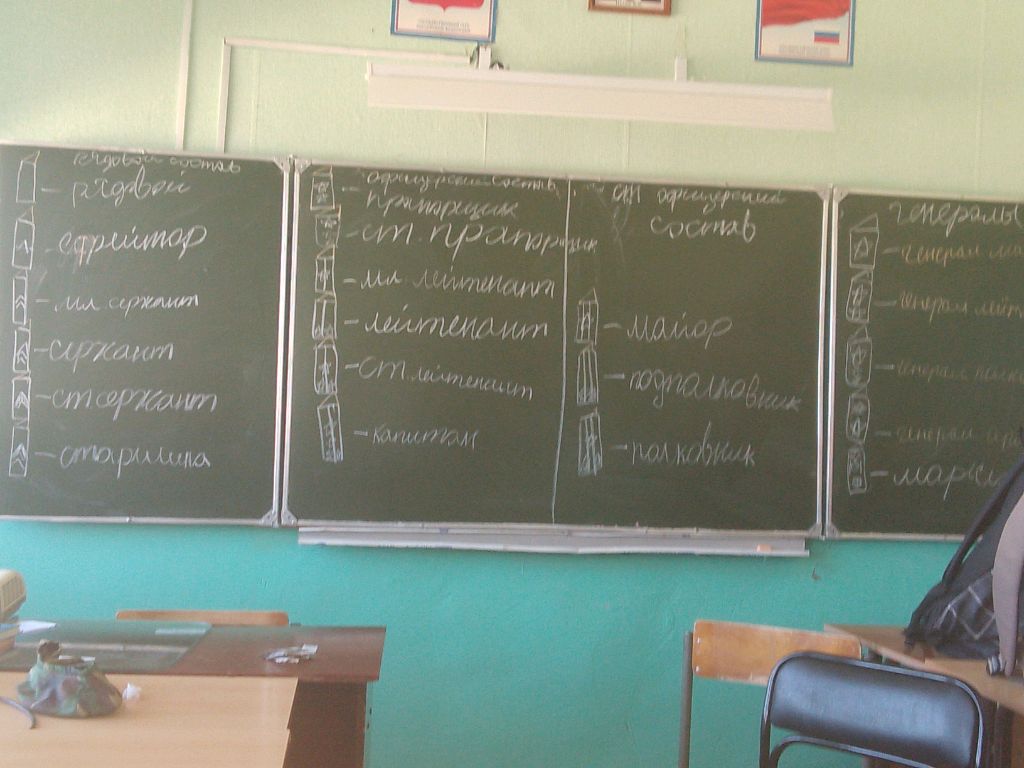 Рядовой состав
– рядовой
– ефрейтор
– мл сержант
– сержант
– ст сержант
– старшина
офицерский состав
– Прапорщик
– ст. прапорщик
– мл лейтенант
– лейтенант
– Ст лейтенант
– капитан
офицерский
состав
– майор
– подполковник
– полковник
генералы
– генерал
– генерал
– генерал
– генерал